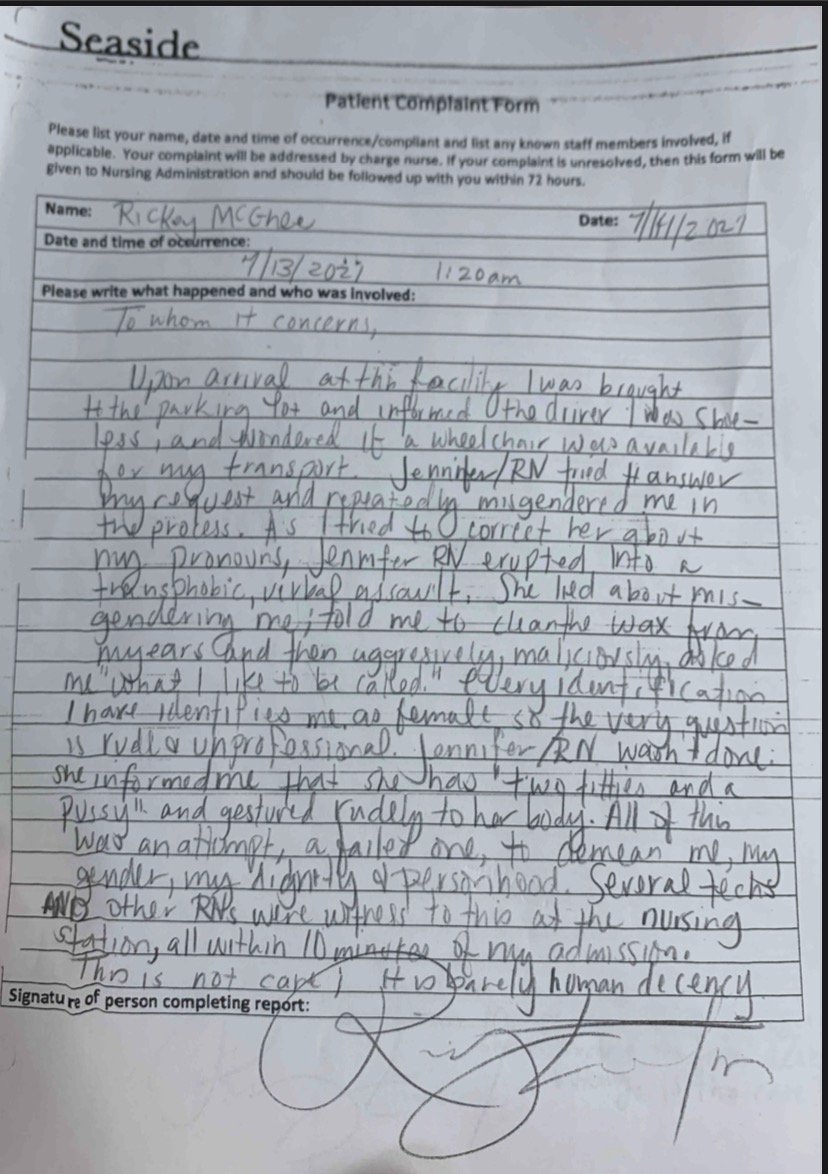 Seaside
Patient Complaint Form
Please list your name, date and time of occurrence/compliant and list any known staff members involved, if
applicable. Your complaint will be addressed by charge nurse. If your complaint is unresolved, then this form will be
given to Nursing Administration and should be followed up with you within 72 hours.
Name: Rickey McGhee Date:
Date and time of occurrence:
1:20am
Please write what happened and who was involved:
To whom it concerns,
Upon arrival at this facility I was brought
the parking lot and informed the driver I was shoe-
less, and wondered if a wheelchair was available
for my transport. Jennifer/RN tried answer
my request and repeatedly misgendered me in
the process. As I tried to correct her about
my pronouns, Jennifer RN erupted into a
transphobic, verbal assault. She lied about mis-
gendering me; told me to clean the wax from
my ears and then aggresively, maliciously, asked
me "what I like to be called." Every identification
I have identifies me as female so the very question
is rude & unprofessional. Jennifer/RN wasn't done:
she informed me that she has "two titties and a
pussy" and gestured rudely to her body. All of this
was an attempt, a failed one, to demean me, my
gender, my dignity & personhood. Several techs
AND other RNs were witness to this at the nursing
station, all within 10 minutes of my admission.
This is not care, it is barely human decency
Signature of person completing report: